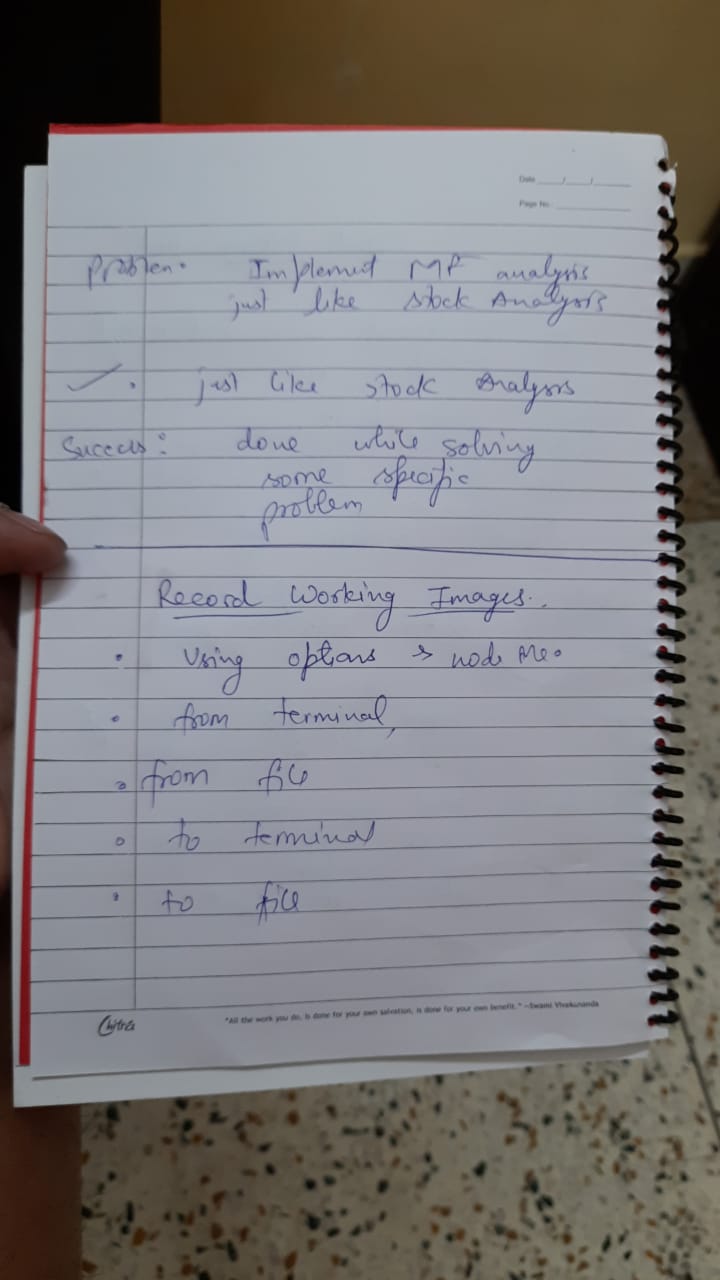 Date ___/___/___
Page No. ___
Problem. Implement MF analysis
just like stock Analysis
✓. just like stock Analysis
Success: done while solving
some specific
problem
Record Working Images.
• Using options → node
• from terminal,
• from file
• to terminal
• to file
Chitra
"All the work you do, is done for your own salvation, is done for your own benefit." –Swami Vivekananda